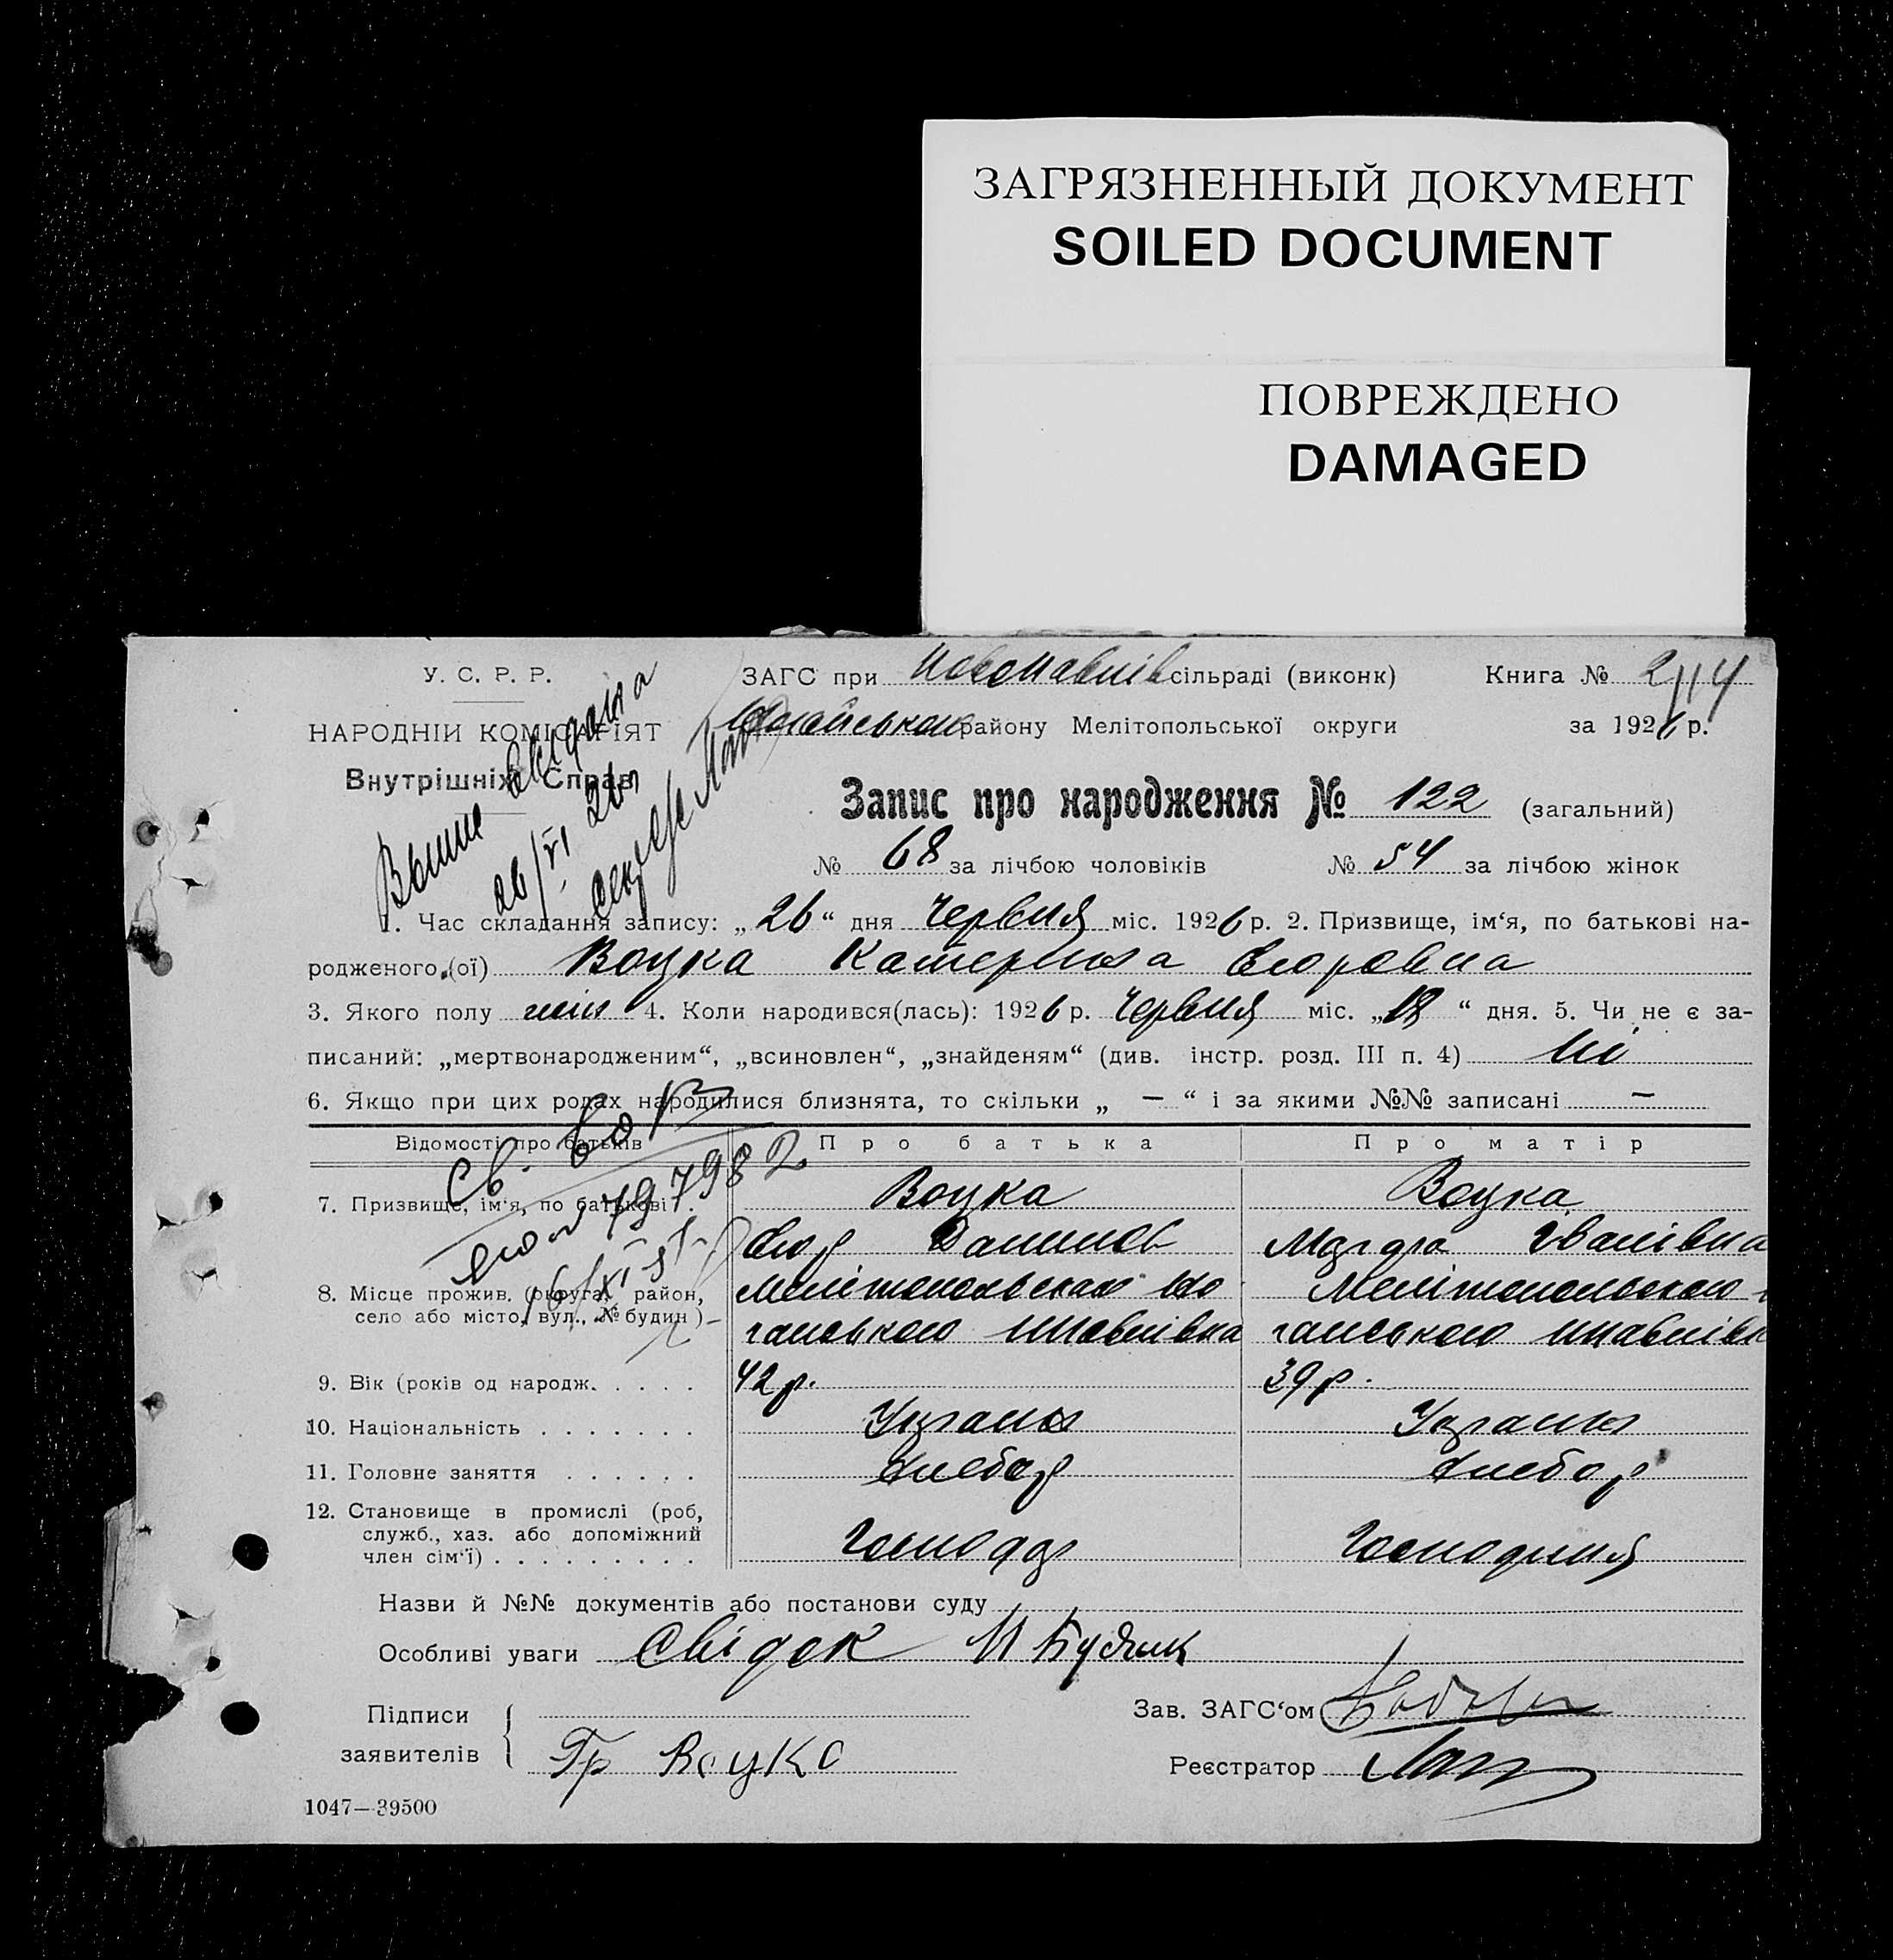 ЗАГРЯЗНЕННЫЙ ДОКУМЕНТ
SOILED DOCUMENT
ПОВРЕЖДЕНО
DAMAGED
У. С. Р. Р.
НАРОДНІЙ КОМІСАРІЯТ
Внутрішніх Справ
ЗАГС при сільраді (виконк) Книга № 2
району Мелітопольської округи за 1926 р.
Запис про народження № 122 (загальний)
№ 68 за лічбою чоловіків № 54 за лічбою жінок
26/VI 26
1. Час складання запису: „ 26 “ дня Червня міс. 1926 р. 2. Призвище, ім‘я, по батькові на-
родженого (ої) Воцка Катерина Єгоровна
3. Якого полу жін 4. Коли народився(лась): 1926 р. Червня міс. „ 18 “ дня. 5. Чи не є за-
писаний: „мертвонародженим“, „всиновлен“, „знайденям“ (див. інстр. розд. III п. 4) Ні
6. Якщо при цих родах народилися близнята, то скільки „ — “ і за якими №№ записані —
Відомості про батьків Про батька Про матір
7. Призвище, ім‘я, по батькові Воцка Воцка
Данилов Іванівна
8. Місце прожив. (округа, район,
село або місто, вул., № будин)
9. Вік (років од народж. . . . . 42 р. 39 р.
10. Національність . . . . . . .
11. Головне заняття . . . . . . Хлебор Хлебор
12. Становище в промислі (роб,
служб., хаз. або допоміжний
член сім‘ї) . . . . . . . . . Господар Господиня
Назви й №№ документів або постанови суду
Особливі уваги Свідок
Підписи
заявителів Гр Воцко
Зав. ЗАГС‘ом
Реєстратор
1047—39500